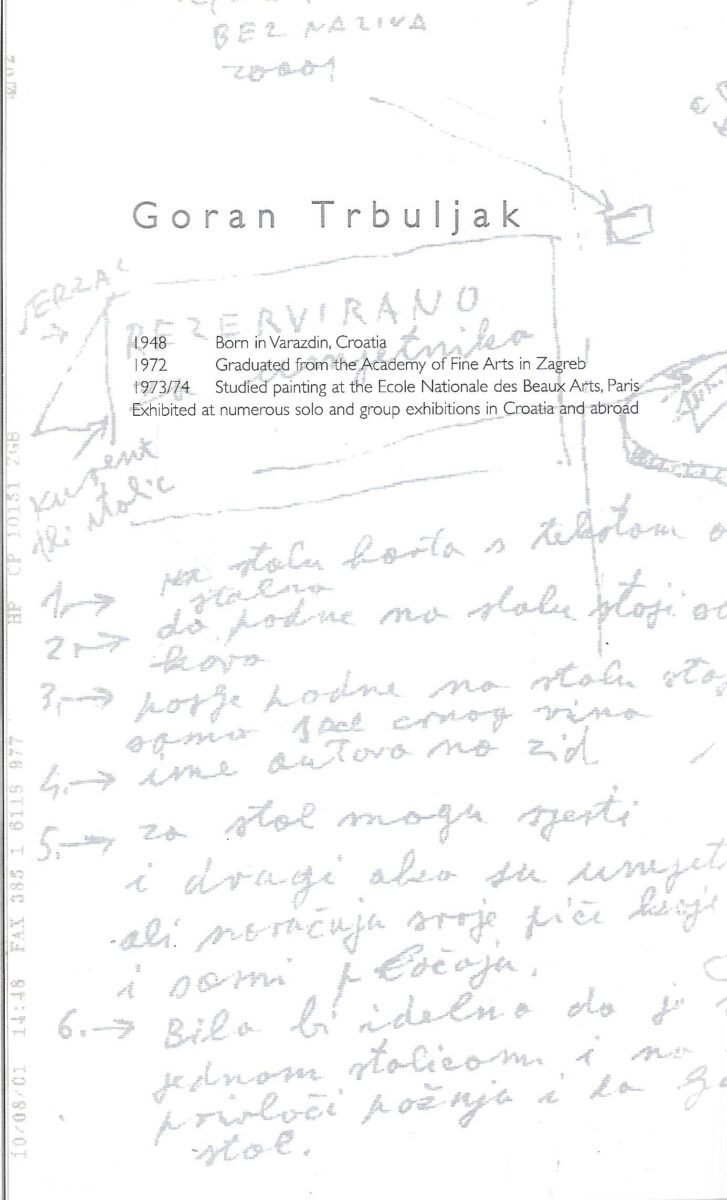 BEZ NAZIVA
2000
Goran Trbuljak
REZERVIRANO
umjetnika
1948 Born in Varazdin, Croatia
1972 Graduated from the Academy of Fine Arts in Zagreb
1973/74 Studied painting at the Ecole Nationale des Beaux Arts, Paris
Exhibited at numerous solo and group exhibitions in Croatia and abroad
ili stolic
1. → na stolu karta s tekstom
stalno
2. → do podne na stolu stoji
kava
3. → poslje podne na stolu
samo crnog vina
4. → ime autora na zid
5. → za stol mogu sjesti
i drugi ako su
ali naručuju svoje piće koje
i sami plaćaju.
6. → Bilo bi idelno da je
jednom stolicom i na
privlači pažnja i da
stol.
10/08/01 14:48 FAX 385 1 6119 877 HP CP 10131 ZGB